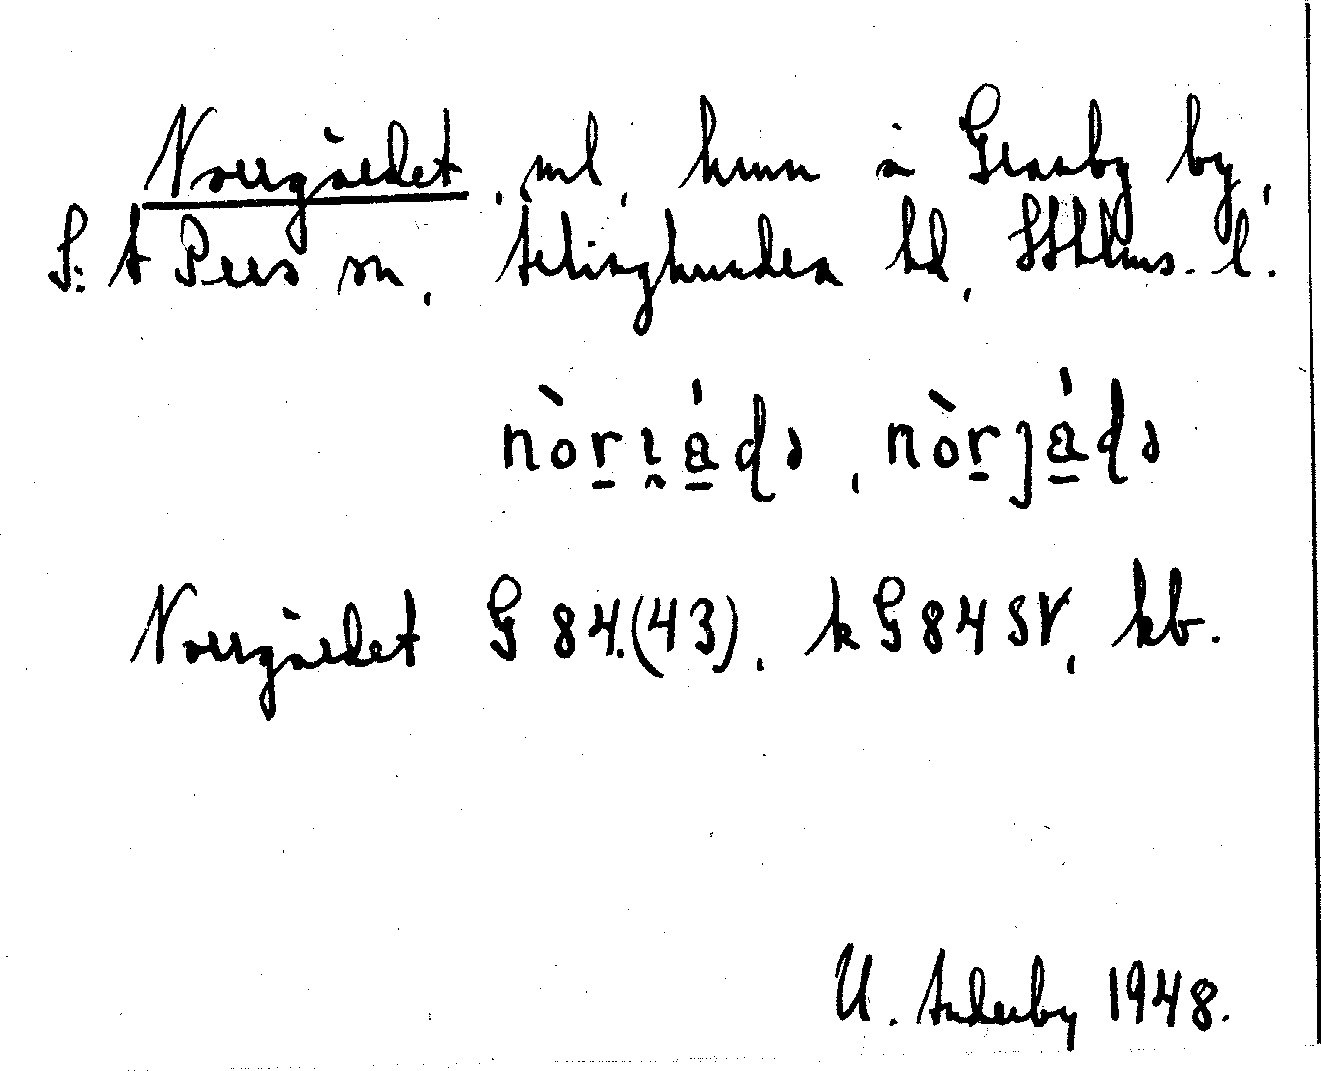 Norrgärdet, ml, hmn å Granby by,
S:t Pers sn, Ärlinghundra hd, Sthlms. l.
nòr̠ı̰á̠ɖə, nòr̠ȷá̠ɖə
Norrgärdet G 84.(43), k G 84 SV, kb.
U. 1948.